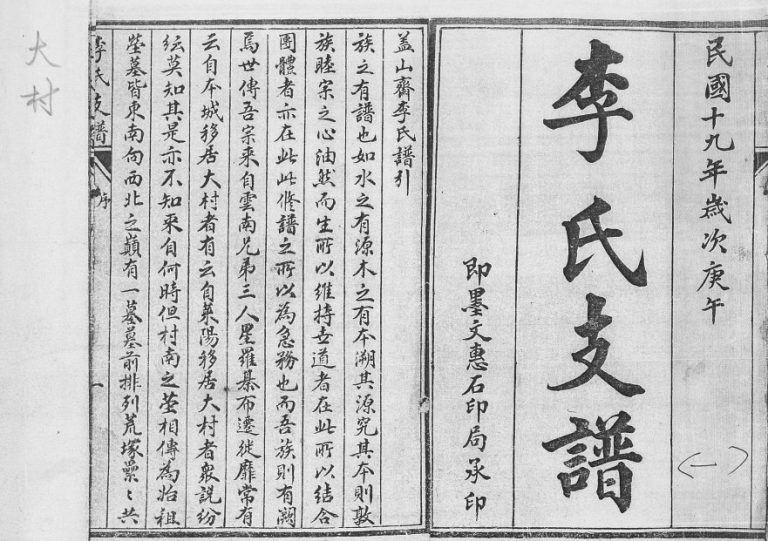 民國十九年歲次庚午
李氏支譜
即墨文惠石印局承印
(一)
盖山齋李氏譜引
族之有譜也如水之有源木之有本溯其源究其本則敦
族睦宗之心油然而生所以維持世道者在此所以結合
團體者亦在此此修譜之所以為急務也而吾族則有闕
焉世傳吾宗來自雲南兄弟三人星羅碁布遷徙靡常有
云自本城移居大村者有云自萊陽移居大村者眾說紛
紜莫知其是亦不知來自何時但村南之塋相傳為始祖
塋墓皆東南向西北之巔有一墓墓前排列荒塚纍〻共
李氏支譜
序
一
大村